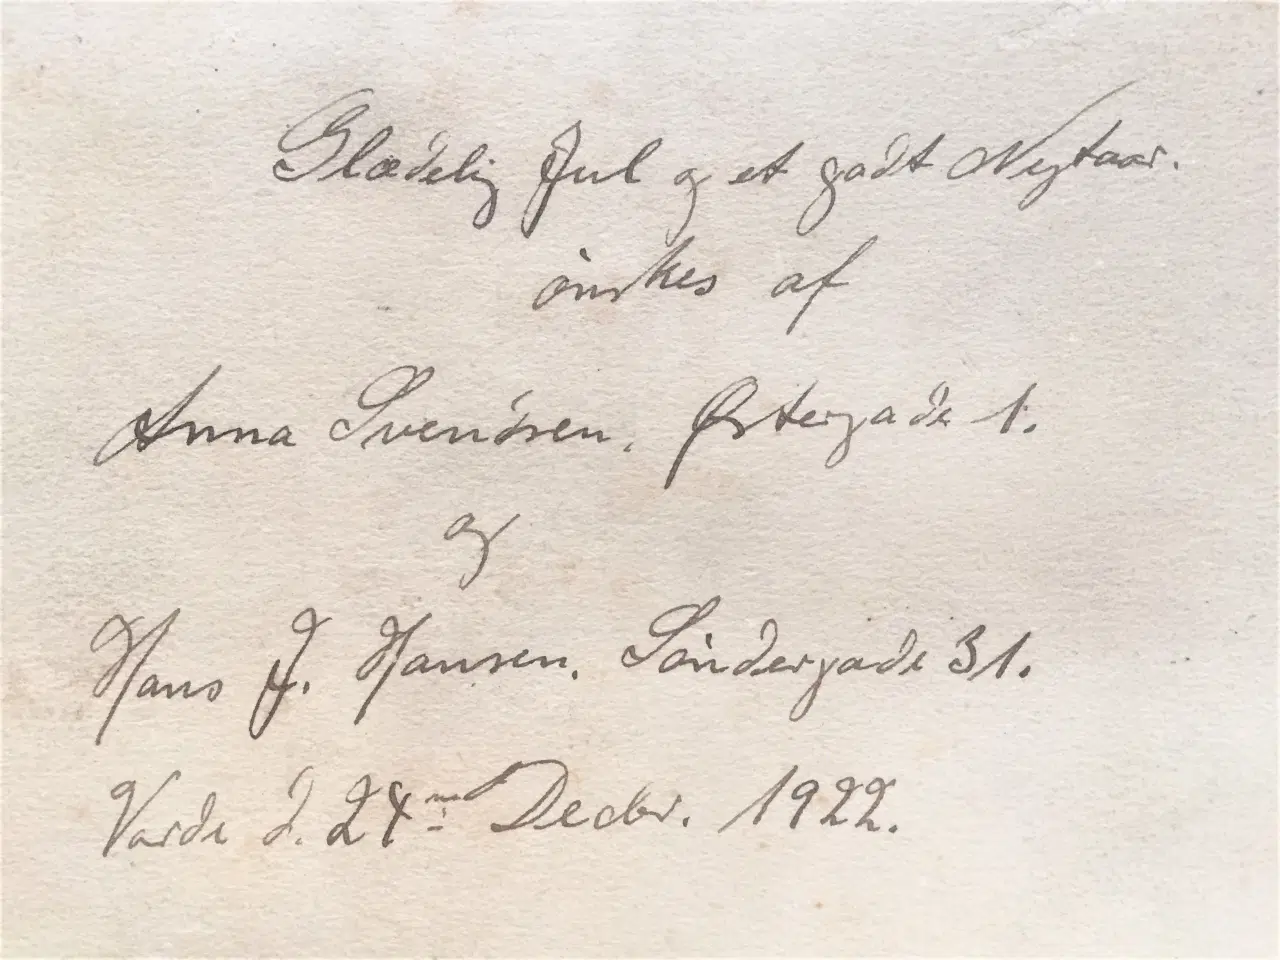 Glædelig Jul og et godt Nytaar.
ønskes af
Anna Svendsen. Østergade 1.
og
Hans J. Hansen. Søndergade 31.
Varde d. 24 Decbr. 1922.